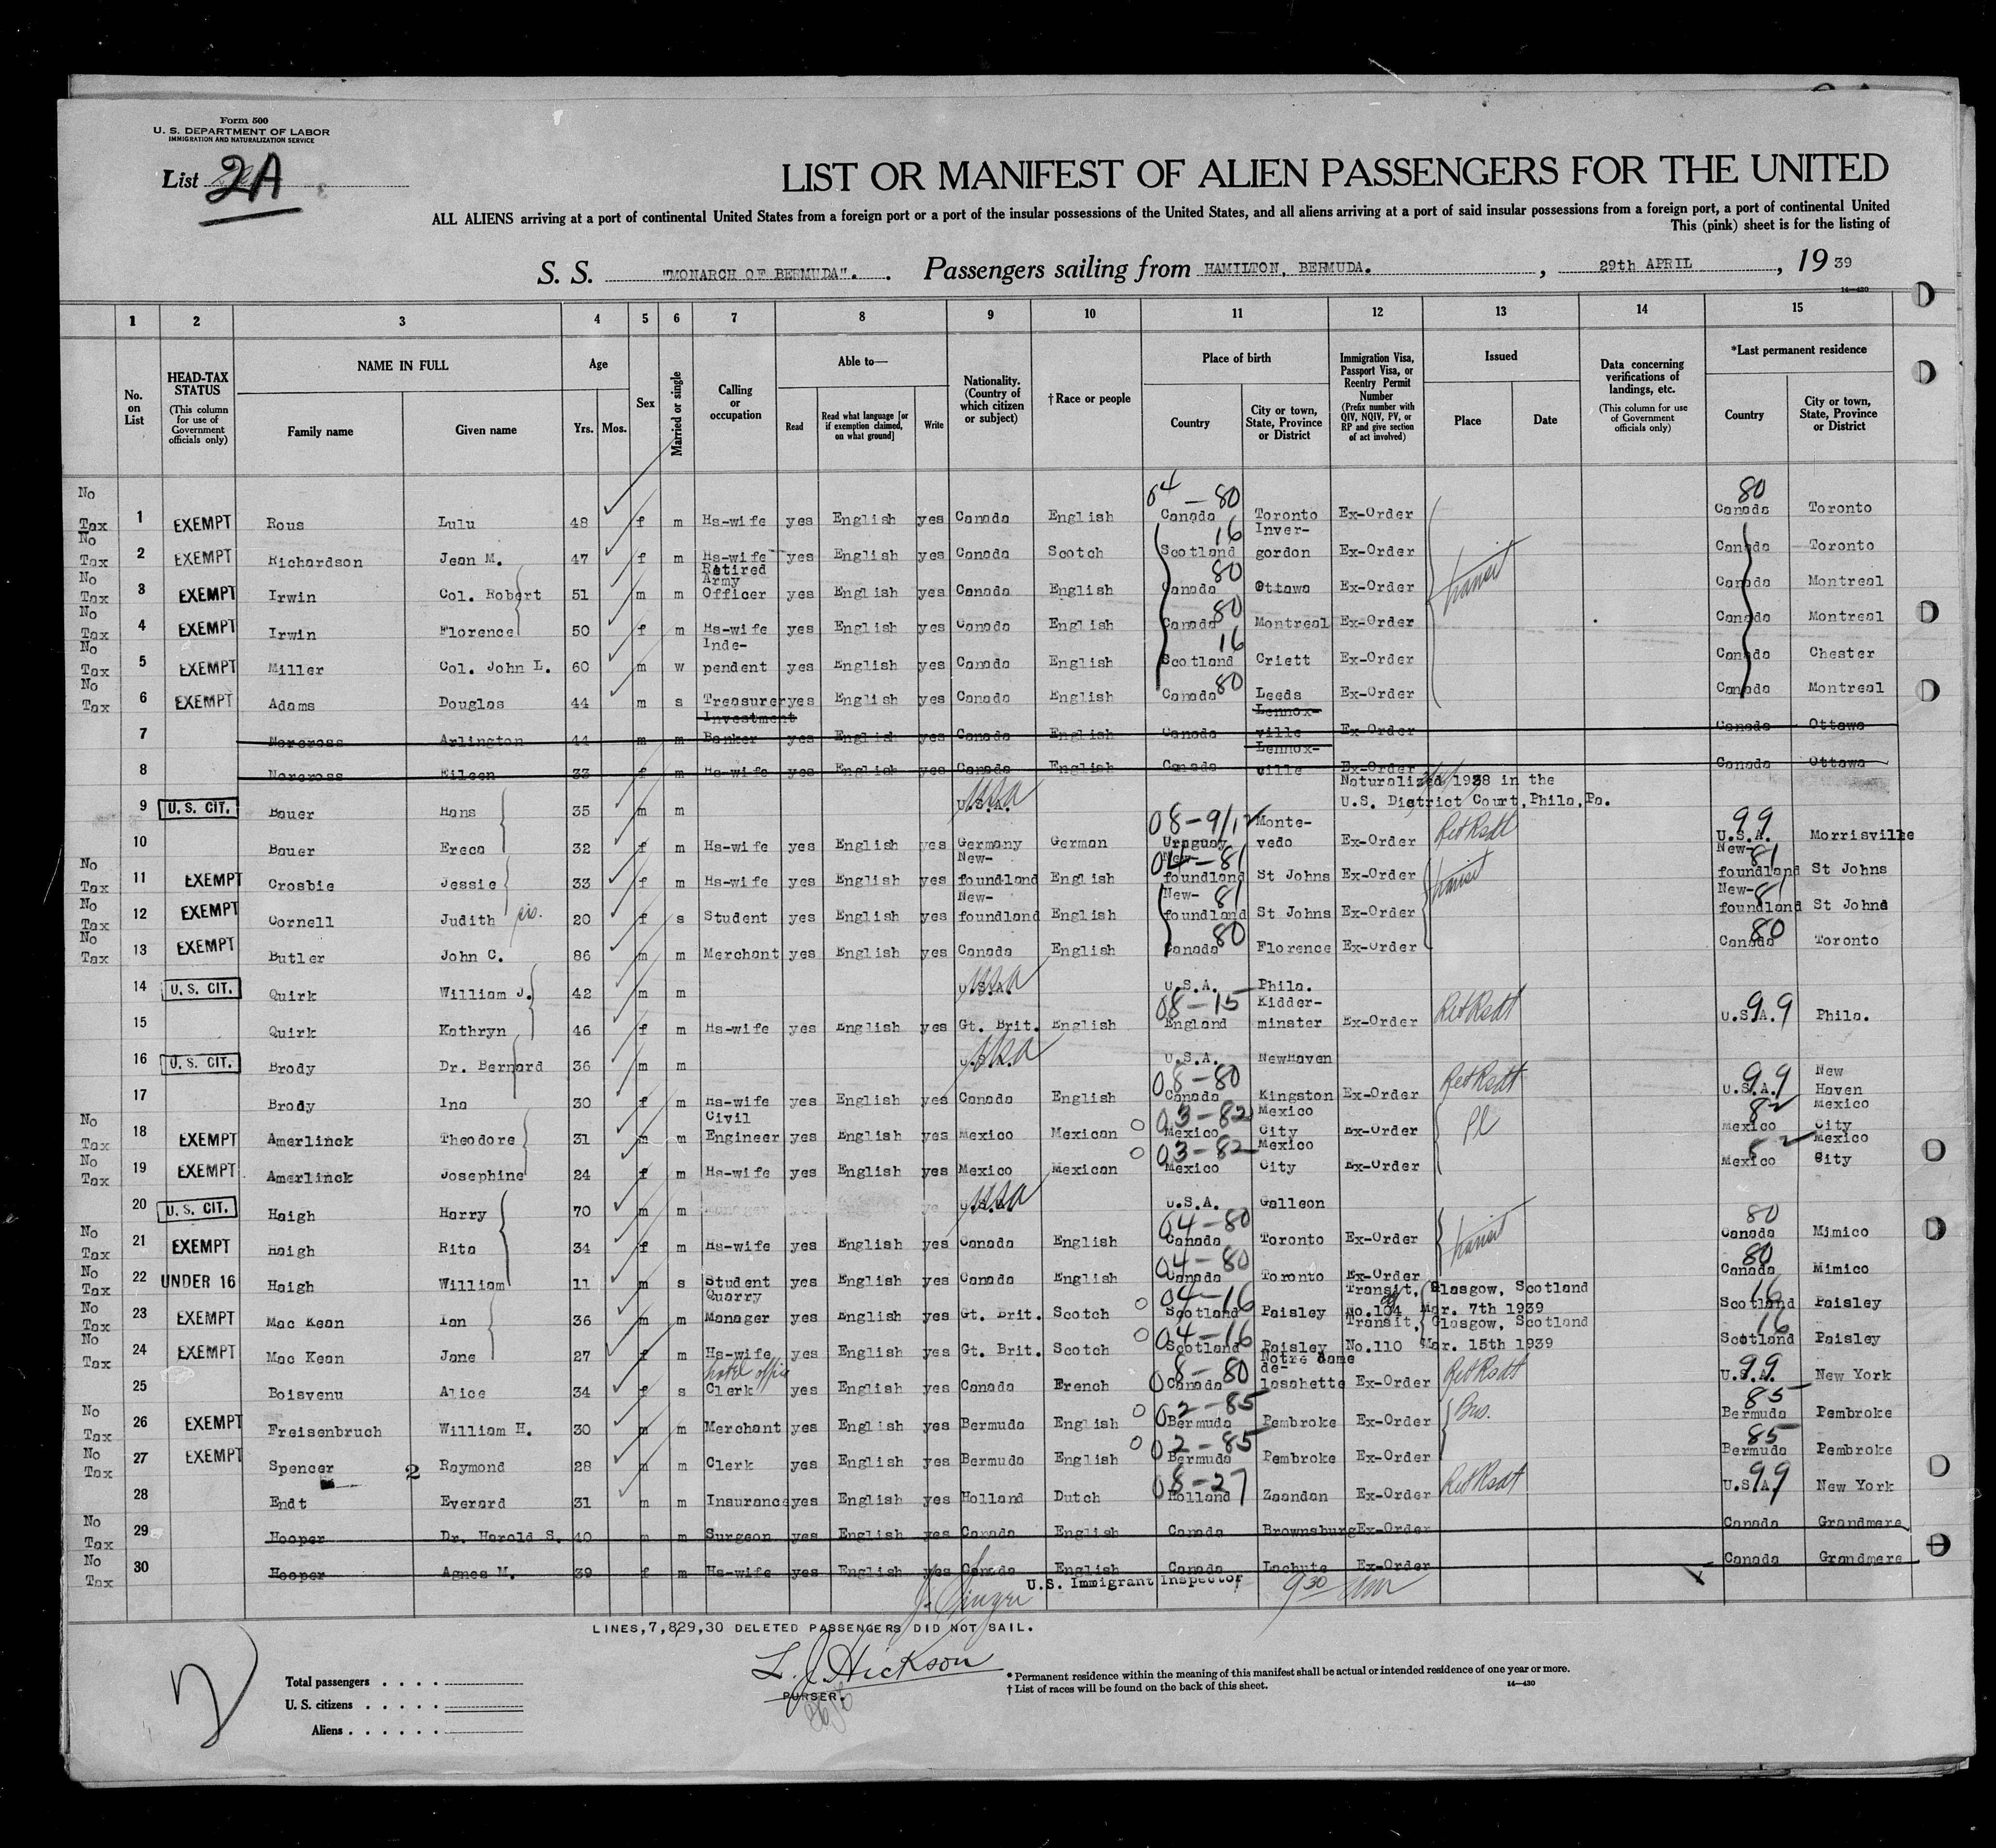 Form 500
U. S. DEPARTMENT OF LABOR
IMMIGRATION AND NATURALIZATION SERVICE
List 2A
LIST OR MANIFEST OF ALIEN PASSENGERS FOR THE UNITED
ALL ALIENS arriving at a port of continental United States from a foreign port or a port of the insular possessions of the United States, and all aliens arriving at a port of said insular possessions from a foreign port, a port of continental United
This (pink) sheet is for the listing of
S. S. "MONARCH OF BERMUDA". Passengers sailing from HAMILTON, BERMUDA. , 29th APRIL , 19 39
14—430
1 2 3 4 5 6 7 8 9 10 11 12 13 14 15
No. on List
HEAD-TAX STATUS (This column for use of Government officials only)
NAME IN FULL
Family name Given name
Age
Yrs. Mos.
Sex
Married or single
Calling or occupation
Able to—
Read Read what language [or if exemption claimed, on what ground] Write
Nationality. (Country of which citizen or subject)
†Race or people
Place of birth
Country City or town, State, Province or District
Immigration Visa, Passport Visa, or Reentry Permit Number (Prefix number with QIV, NQIV, PV, or RP and give section of act involved)
Issued
Place Date
Data concerning verifications of landings, etc. (This column for use of Government officials only)
*Last permanent residence
Country City or town, State, Province or District
No Tax 1 EXEMPT Rous Lulu 48 f m Hs-wife yes English yes Canada English 04-80 Canada Toronto Ex-Order 80 Canada Toronto
No Tax 2 EXEMPT Richardson Jean M. 47 f m Hs-wife yes English yes Canada Scotch 16 Scotland Inver-gordon Ex-Order transit Canada Toronto
No Tax 3 EXEMPT Irwin Col. Robert 51 m m Retired Army Officer yes English yes Canada English 80 Canada Ottawa Ex-Order Canada Montreal
No Tax 4 EXEMPT Irwin Florence 50 f m Hs-wife yes English yes Canada English 80 Canada Montreal Ex-Order Canada Montreal
No Tax 5 EXEMPT Miller Col. John L. 60 m w Inde-pendent yes English yes Canada English 16 Scotland Criett Ex-Order Canada Chester
No Tax 6 EXEMPT Adams Douglas 44 m s Treasurer yes English yes Canada English 80 Canada Leeds Ex-Order Canada Montreal
7 Norcross Arlington 44 m m Investment Banker yes English yes Canada English Canada Lennox-ville Ex-Order Canada Ottawa
8 Norcross Eileen 33 f m Hs-wife yes English yes Canada English Canada Lennox-ville Ex-Order Canada Ottawa
9 U. S. CIT. Bauer Hans 35 m m U.S.A. USA Naturalized 1938 in the U.S. District Court, Phila, Pa.
10 Bauer Ereca 32 f m Hs-wife yes English yes Germany German 08-9/12 Uruguay Monte-vedo Ex-Order Ret Rsdt 99 U.S.A. Morrisville
No Tax 11 EXEMPT Crosbie Jessie 33 f m Hs-wife yes English yes New-foundland English 04-81 New-foundland St Johns Ex-Order transit 81 New-foundland St Johns
No Tax 12 EXEMPT Cornell Judith sis. 20 f s Student yes English yes New-foundland English 81 New-foundland St Johns Ex-Order 81 New-foundland St Johns
No Tax 13 EXEMPT Butler John C. 86 m m Merchant yes English yes Canada English 80 Canada Florence Ex-Order 80 Canada Toronto
14 U. S. CIT. Quirk William J. 42 m m U.S.A. USA U.S.A. Phila.
15 Quirk Kathryn 46 f m Hs-wife yes English yes Gt. Brit. English 08-15 England Kidder-minster Ex-Order Ret Rsdt 99 U.S.A. Phila.
16 U. S. CIT. Brody Dr. Bernard 36 m m U.S.A. USA U.S.A. NewHaven
17 Brody Ina 30 f m Hs-wife yes English yes Canada English 08-80 Canada Kingston Ex-Order Ret Rsdt 99 U.S.A. New Haven
No Tax 18 EXEMPT Amerlinck Theodore 31 m m Civil Engineer yes English yes Mexico Mexican 03-82 Mexico Mexico City Ex-Order Pl 82 Mexico Mexico City
No Tax 19 EXEMPT Amerlinck Josephine 24 f m Hs-wife yes English yes Mexico Mexican 03-82 Mexico Mexico City Ex-Order 82 Mexico Mexico City
20 U. S. CIT. Haigh Harry 70 m m U.S.A. USA U.S.A. Galleon
No Tax 21 EXEMPT Haigh Rita 34 f m Hs-wife yes English yes Canada English 04-80 Canada Toronto Ex-Order transit 80 Canada Mimico
No Tax 22 UNDER 16 Haigh William 11 m s Student yes English yes Canada English 04-80 Canada Toronto Ex-Order 80 Canada Mimico
No Tax 23 EXEMPT Mac Kean Ian 36 m m Quarry Manager yes English yes Gt. Brit. Scotch 04-16 Scotland Paisley Transit. No.104 Glasgow, Scotland Mar. 7th 1939 16 Scotland Paisley
No Tax 24 EXEMPT Mac Kean Jane 27 f m Hs-wife yes English yes Gt. Brit. Scotch 04-16 Scotland Paisley Transit. No.110 Glasgow, Scotland Mar. 15th 1939 16 Scotland Paisley
25 Boisvenu Alice 34 f s hotel office Clerk yes English yes Canada French 08-80 Canada Notre Dame de-losahette Ex-Order Ret Rsdt 99 U.S.A. New York
No Tax 26 EXEMPT Freisenbruch William H. 30 m m Merchant yes English yes Bermuda English 02-85 Bermuda Pembroke Ex-Order Bus. 85 Bermuda Pembroke
No Tax 27 EXEMPT Spencer 2 Raymond 28 m m Clerk yes English yes Bermuda English 02-85 Bermuda Pembroke Ex-Order 85 Bermuda Pembroke
28 Endt Everard 31 m m Insurance yes English yes Holland Dutch 08-27 Holland Zaandan Ex-Order Ret Rsdt 99 U.S.A. New York
No Tax 29 Hooper Dr. Harold S. 40 m m Surgeon yes English yes Canada English Canada Brownsburg Ex-Order Canada Grandmere
No Tax 30 Hooper Agnes M. 39 f m Hs-wife yes English yes Canada English Canada Lachute Ex-Order Canada Grandmere
U.S. Immigrant Inspector 9 30 am
LINES,7,829,30 DELETED PASSENGERS DID NOT SAIL.
L. J. Hickson
PURSER.
2
Total passengers . . . .
U. S. citizens . . . . .
Aliens . . . . . .
* Permanent residence within the meaning of this manifest shall be actual or intended residence of one year or more.
† List of races will be found on the back of this sheet.
14—430